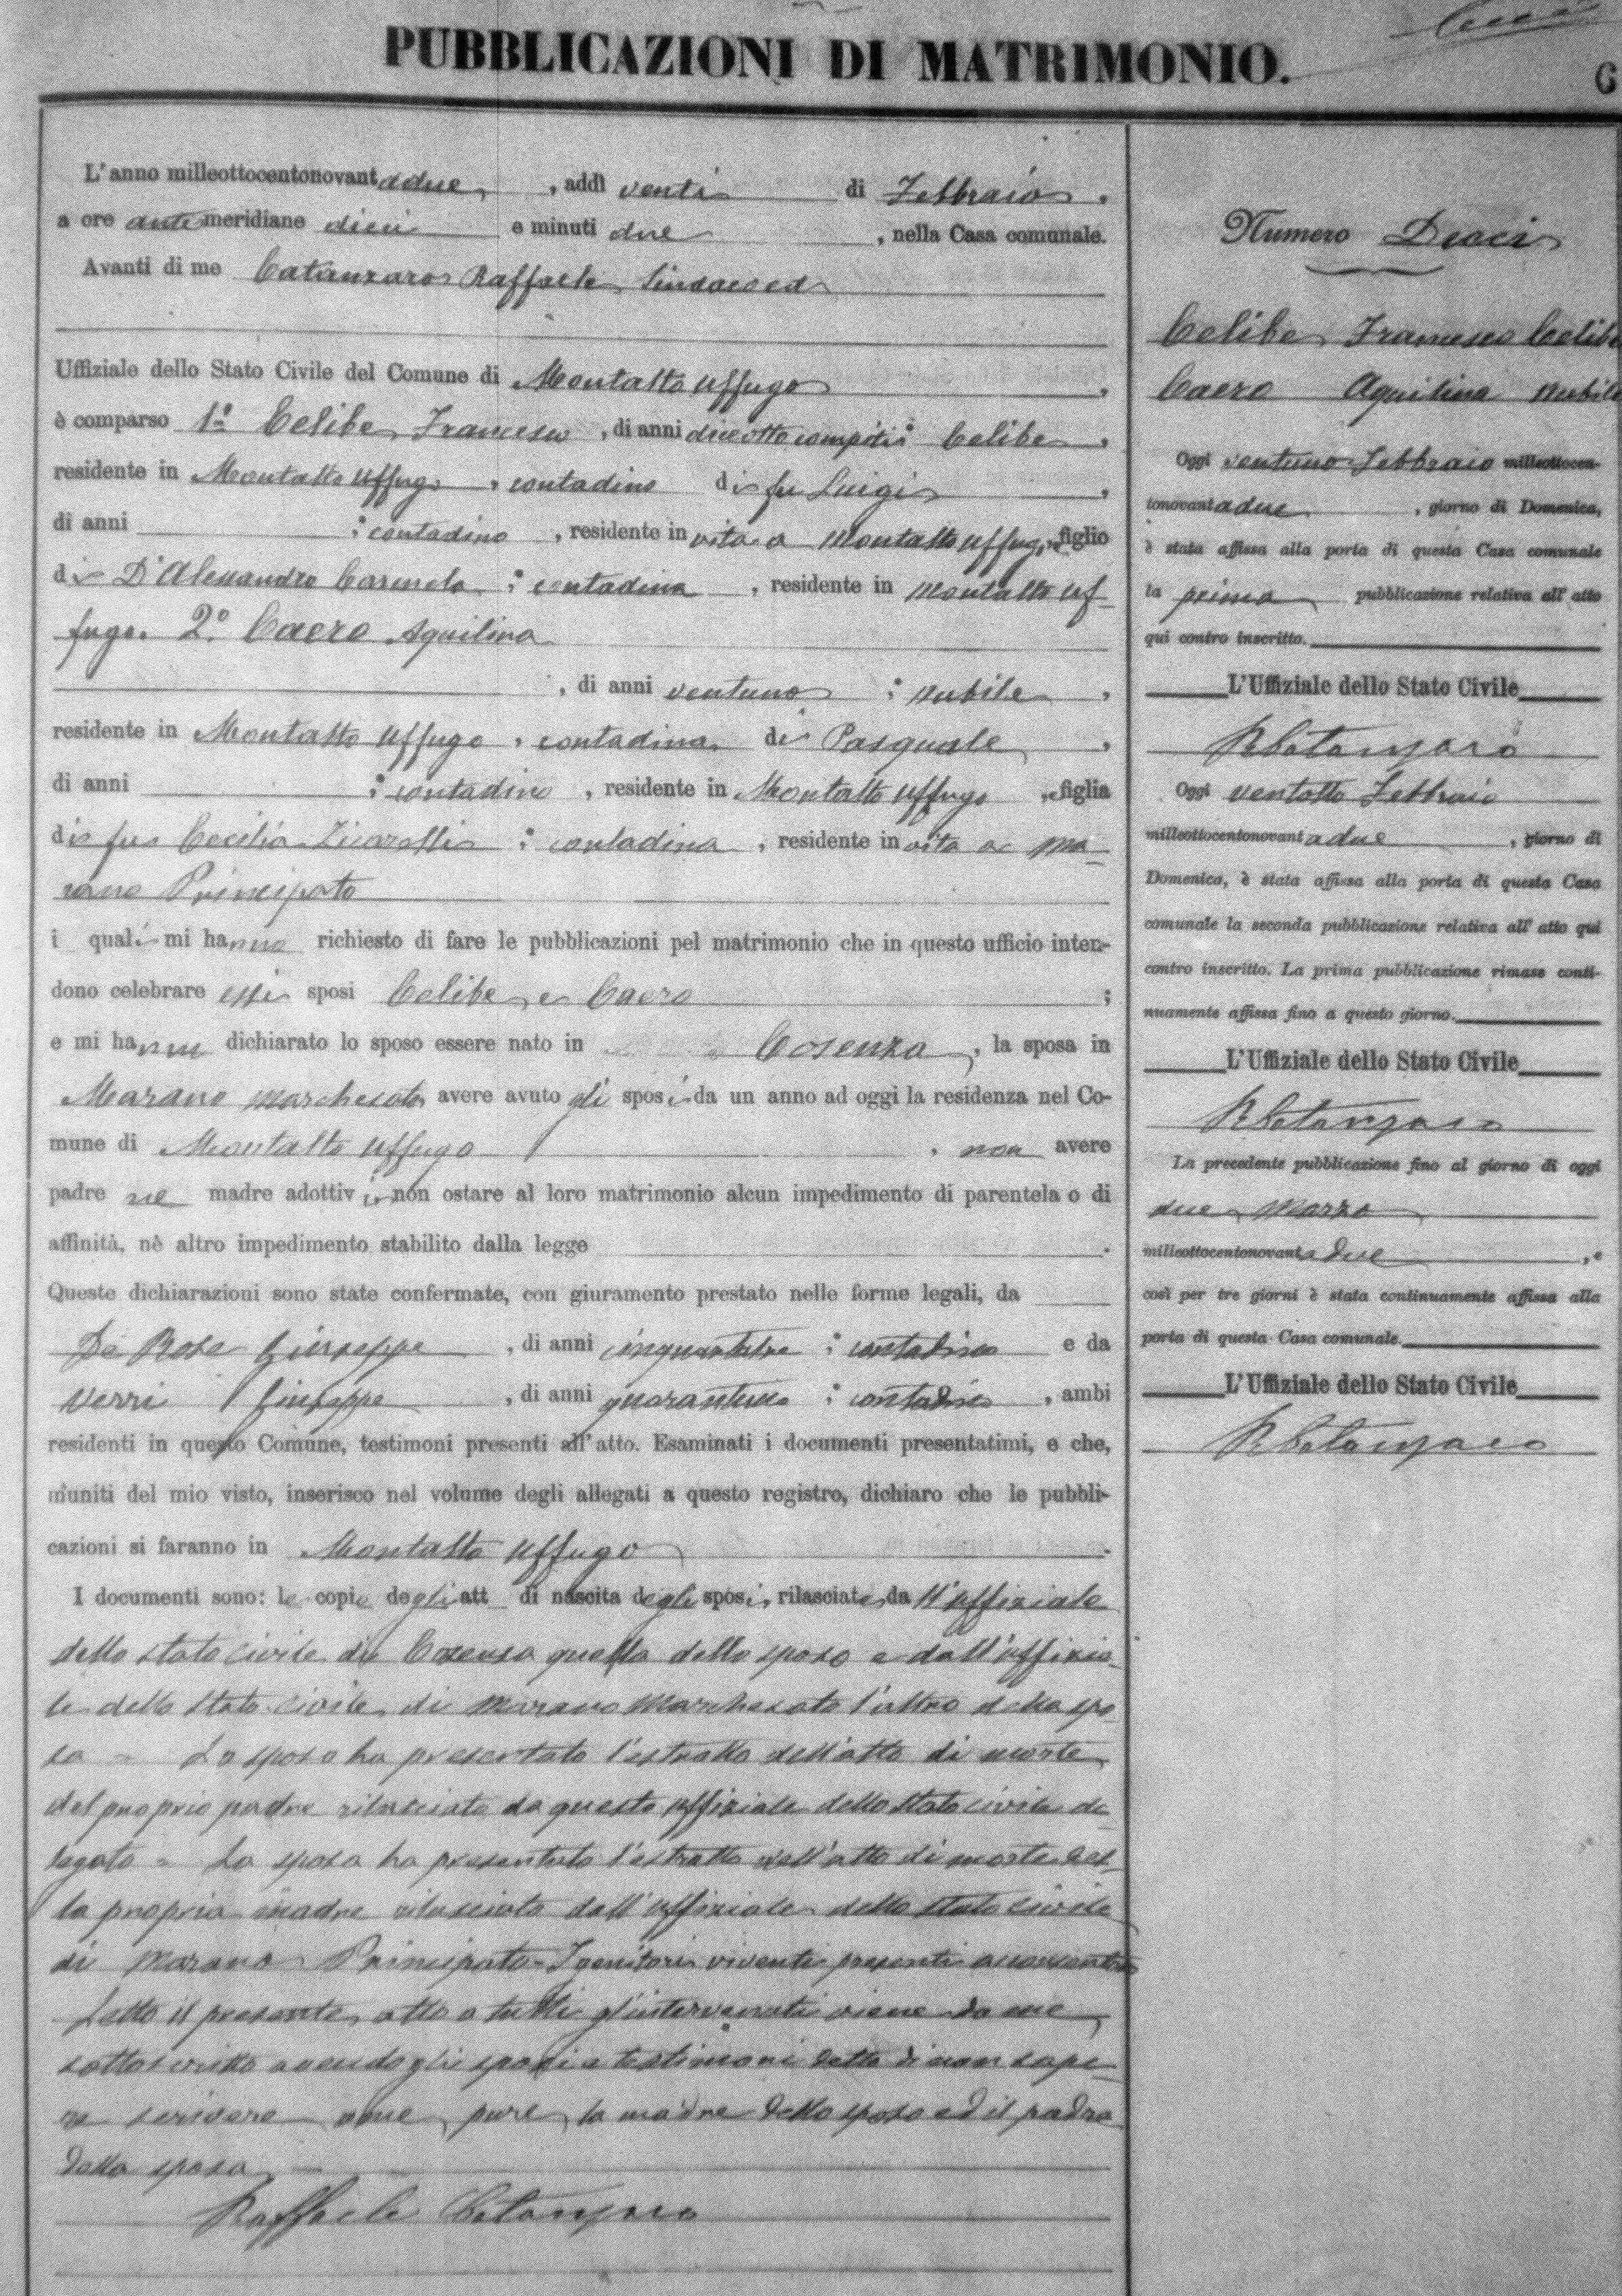 PUBBLICAZIONI DI MATRIMONIO.
L'anno milleottocentonovantadue, addì venti di Febbraio,
a ore antemeridiane dieci e minuti due, nella Casa comunale.
Avanti di me Catanzaro Raffaele Sindaco ed
Uffiziale dello Stato Civile del Comune di Montalto Uffugo,
è comparso 1º Celibe Francesco, di anni dieciotto compiti; Celibe,
residente in Montalto Uffugo, contadino di fu Luigi,
di anni ; contadino, residente in vita a Montalto Uffugo, figlio
di D'Alessandro Carmela; contadina, residente in Montalto Uf-
fugo. 2º Caero Aquilina
, di anni ventuno; nubile,
residente in Montalto Uffugo, contadina, di Pasquale,
di anni ; contadino, residente in Montalto Uffugo, figlia
di fu Cecilia Zicarelli; contadina, residente in vita a Ma-
rano Principato
i quali mi hanno richiesto di fare le pubblicazioni pel matrimonio che in questo ufficio inten-
dono celebrare essi sposi Celibe e Caero;
e mi hanno dichiarato lo sposo essere nato in Cosenza, la sposa in
Marano Marchesato avere avuto gli sposi da un anno ad oggi la residenza nel Co-
mune di Montalto Uffugo, non avere
padre ne madre adottivi, non ostare al loro matrimonio alcun impedimento di parentela o di
affinità, nè altro impedimento stabilito dalla legge.
Queste dichiarazioni sono state confermate, con giuramento prestato nelle forme legali, da
De Rose Giuseppe, di anni cinquantatre; contadino e da
Verri Giuseppe, di anni quarantuno; contadino, ambi
residenti in questo Comune, testimoni presenti all'atto. Esaminati i documenti presentatimi, e che,
muniti del mio visto, inserisco nel volume degli allegati a questo registro, dichiaro che le pubbli-
cazioni si faranno in Montalto Uffugo.
I documenti sono: le copie degli att di nascita degli sposi, rilasciate da ll'uffiziale
dello stato civile di Cosenza quella dello sposo e dall'uffizia-
le dello stato civile di Marano Marchesato l'altro della spo-
sa = Lo sposo ha presentato l'estratto dell'atto di morte
del proprio padre rilasciato da questo uffiziale dello stato civile de-
legato = La sposa ha presentato l'estratto dell'atto di morte del-
la propria madre rilasciato dall'uffiziale dello stato civile
di Marano Principato = I genitori viventi presenti acconsentono
Letto il presente atto a tutti gl'intervenuti viene da me
sottoscritto avendo gli sposi e testimoni detto di non sape-
re scrivere come pure la madre dello sposo ed il padre
della sposa
Raffaele Catanzaro
Numero Dieci
Celibe Francesco Celibe
Caero Aquilina nubile
Oggi ventuno Febbraio milleottocen-
tonovantadue, giorno di Domenica,
è stata affissa alla porta di questa Casa comunale
la prima pubblicazione relativa all'atto
qui contro inscritto.
L'Uffiziale dello Stato Civile
R Catanzaro
Oggi ventotto Febbraio
milleottocentonovantadue, giorno di
Domenica, è stata affissa alla porta di questa Casa
comunale la seconda pubblicazione relativa all'atto qui
contro inscritto. La prima pubblicazione rimase conti-
nuamente affissa fino a questo giorno.
L'Uffiziale dello Stato Civile
R Catanzaro
La precedente pubblicazione fino al giorno di oggi
due Marzo
milleottocentonovantadue, e
così per tre giorni è stata continuamente affissa alla
porta di questa Casa comunale.
L'Uffiziale dello Stato Civile
R Catanzaro